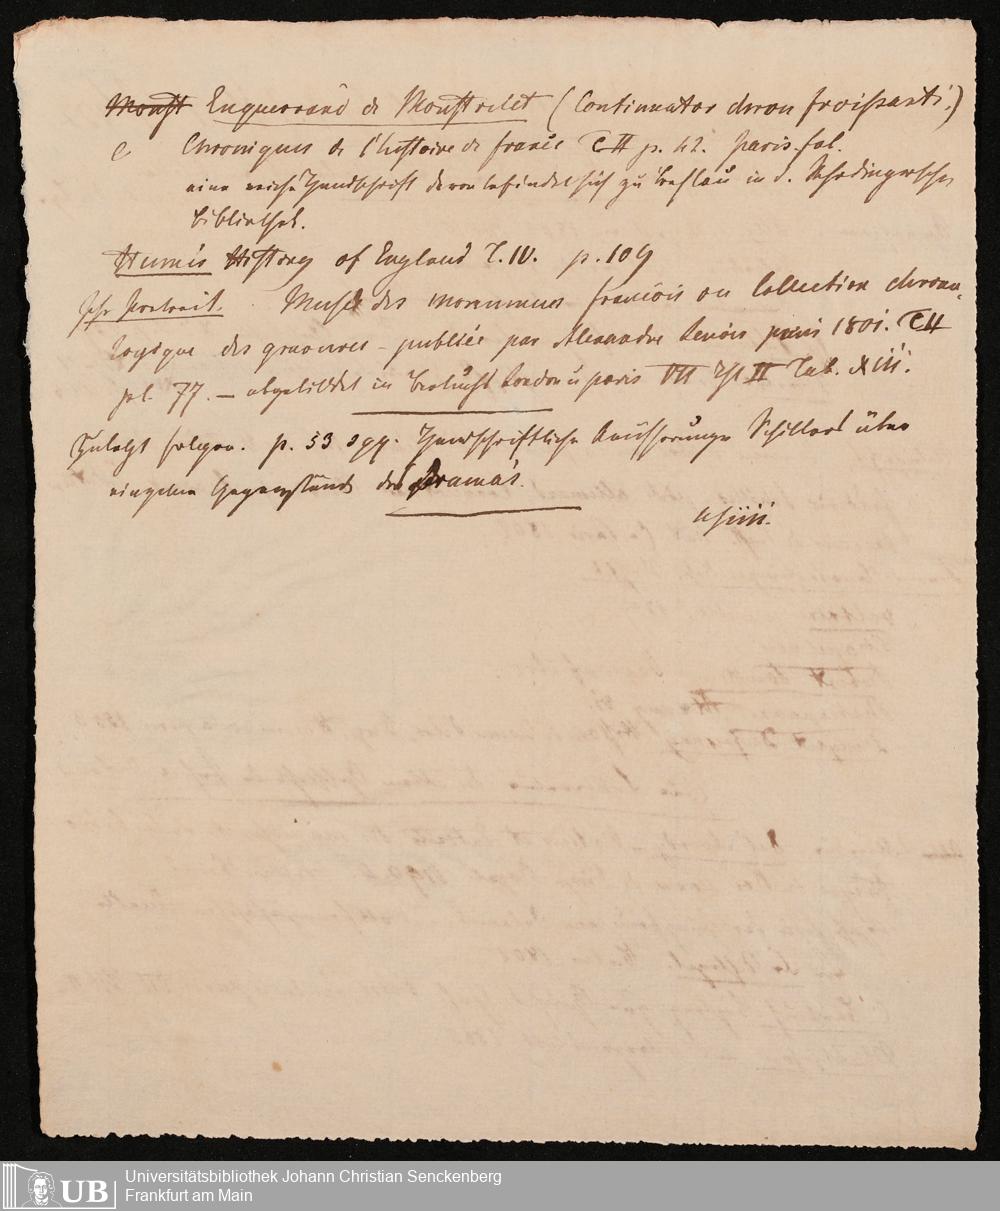 Monst Enguerrand de Monstrelet (Continuator chron Froissarti.)
e Chroniques de l'histoire de France T II p. 42. Paris. fol.
eine Handschrift davon befindet sich zu Breslau in d. Rhedingersche
Bibliothek.
Humes History of England T. IV. p. 109
Ihr Portrait. Musée des monumens francois ou Collection chrono-
logique des gravures - publiée par Alexandre Lenoir paris 1801. T II
pl. 77. — abgebildet in London u paris VII St II Tab. XIII.
Zulezt folgen. p. 53 sqq. Handschriftliche Aeusserungen Schillers über
einzelne Gegenstände des Dramas.
Universitätsbibliothek Johann Christian Senckenberg
UB Frankfurt am Main